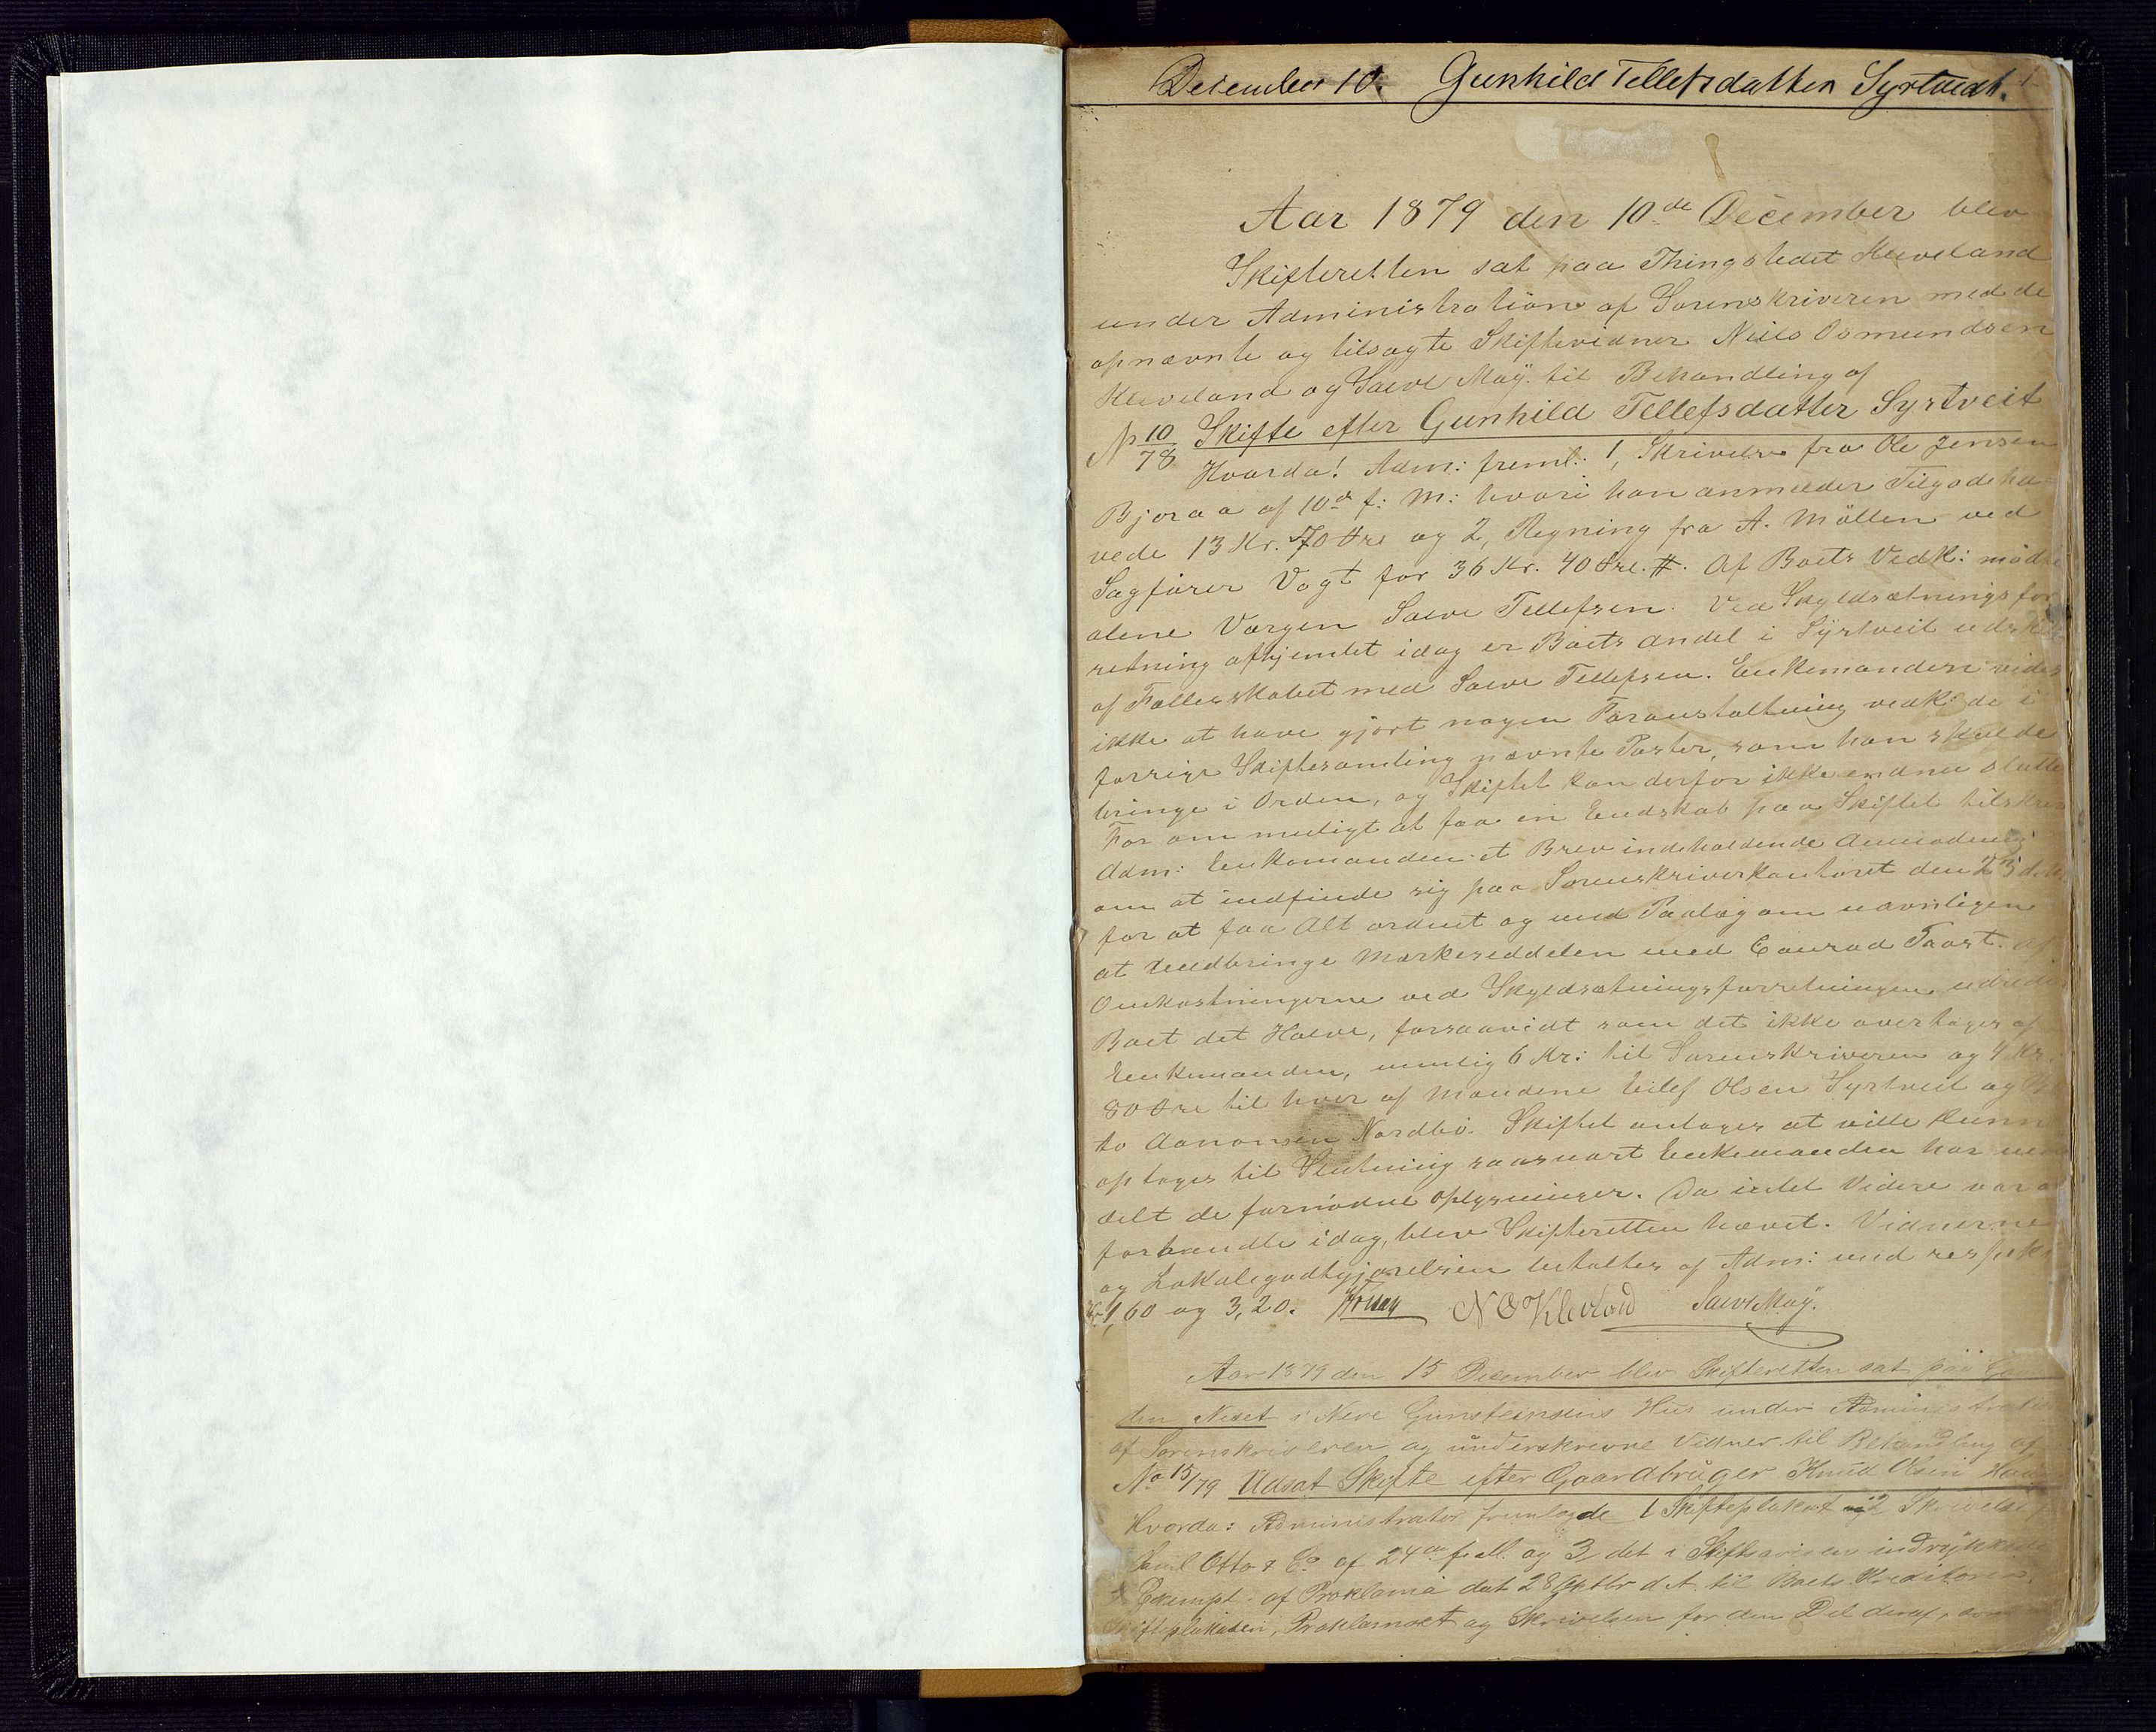 December 10. Gunhild Tellefsdatter Syrtveit. 1
Aar 1879 den 10de December blev
Skifteretten sat paa Thingstedet Kleveland
under Administration af Sorenskriveren med de
opnævnte og tilsagte Skiftevidner Niels Osmundsen
Kleveland og Salve Moÿ. til Behandling af
No 10/78 Skifte efter Gunhild Tellefsdatter Syrtveit
Hvorda! Adm: freml: 1, Skrivelse fra Ole Jensen
Bjoraa af 10de f: M: hvori han anmelder Tilgodeha-
vende 13 Kr. 70 Øre og 2, Regning fra A. Möllen ved
Sagfører Vogt for 36 Kr. 40 Øre. #. Af Boets Vedk: mødte
alene Værgen Salve Tellefsen. Ved Skyldsætningsfor
retning afhjemlet idag er Boets Andel i Syrtveit udskilt
af Fællesskabet med Salve Tellefsen. Enkemanden vides
ikke at have gjort nogen Foranstaltning vedk: de i
forrige Skiftesamling nævnte Poster, som han skulde
bringe i Orden, og Skiftet kan derfor ikke endnu slutte
For om muligt at faa en Endskab paa Skiftet tilskrev
Adm: Enkemanden et Brev indeholdende Anmodning
om at indfinde sig paa Sorenskriverkontoret den 23 d. M.
for at faa Alt ordnet og med Paalæg om navnligen
at medbringe Markeseddelen med Conrad Taast. Af
Omkostningerne ved Skyldsætningsforretningen udreder
Boet det Halve, forsaavidt som det ikke overtages af
Enkemanden, nemlig 6 Kr: til Sorenskriveren og 4 Kr.
80 Øre til hver af Mændene Eilef Olsen Syrtveit og
to Aanonsen Nordbø. Skiftet antages at ville kunne
optages til Slutning saasnart Enkemanden har med
delt de fornødne Oplysninger. Da intet Videre var at
forhandle idag, blev Skifteretten hævet. Vidnerne
og Lokalegodtgjørelsen betaltes af Adm: med respekt
Kr 1,60 og 3,20. N O Klevland Salve Moÿ.
Aar 1879 den 15 December blev Skifteretten sat paa
den Neset i Neve Gunsteinsens Hus under Administration
af Sorenskriveren og underskrevne Vidner til Behandling af
No 15/79 Udsat Skifte efter Gaardbruger Knud Olsen
Hvorda: Administrator fremlagde 1 Skifteplakat 2 Skrivelse
Emil Otto & Co af 24de f. M. og 3, det i Stiftsavisen indrykkede
Exempl. af Proklama dat 28 Oktbr d. A. til Boets Kreditorer.
Skifteplakaten, Proklamaet og Skrivelsen for den Del deraf, som